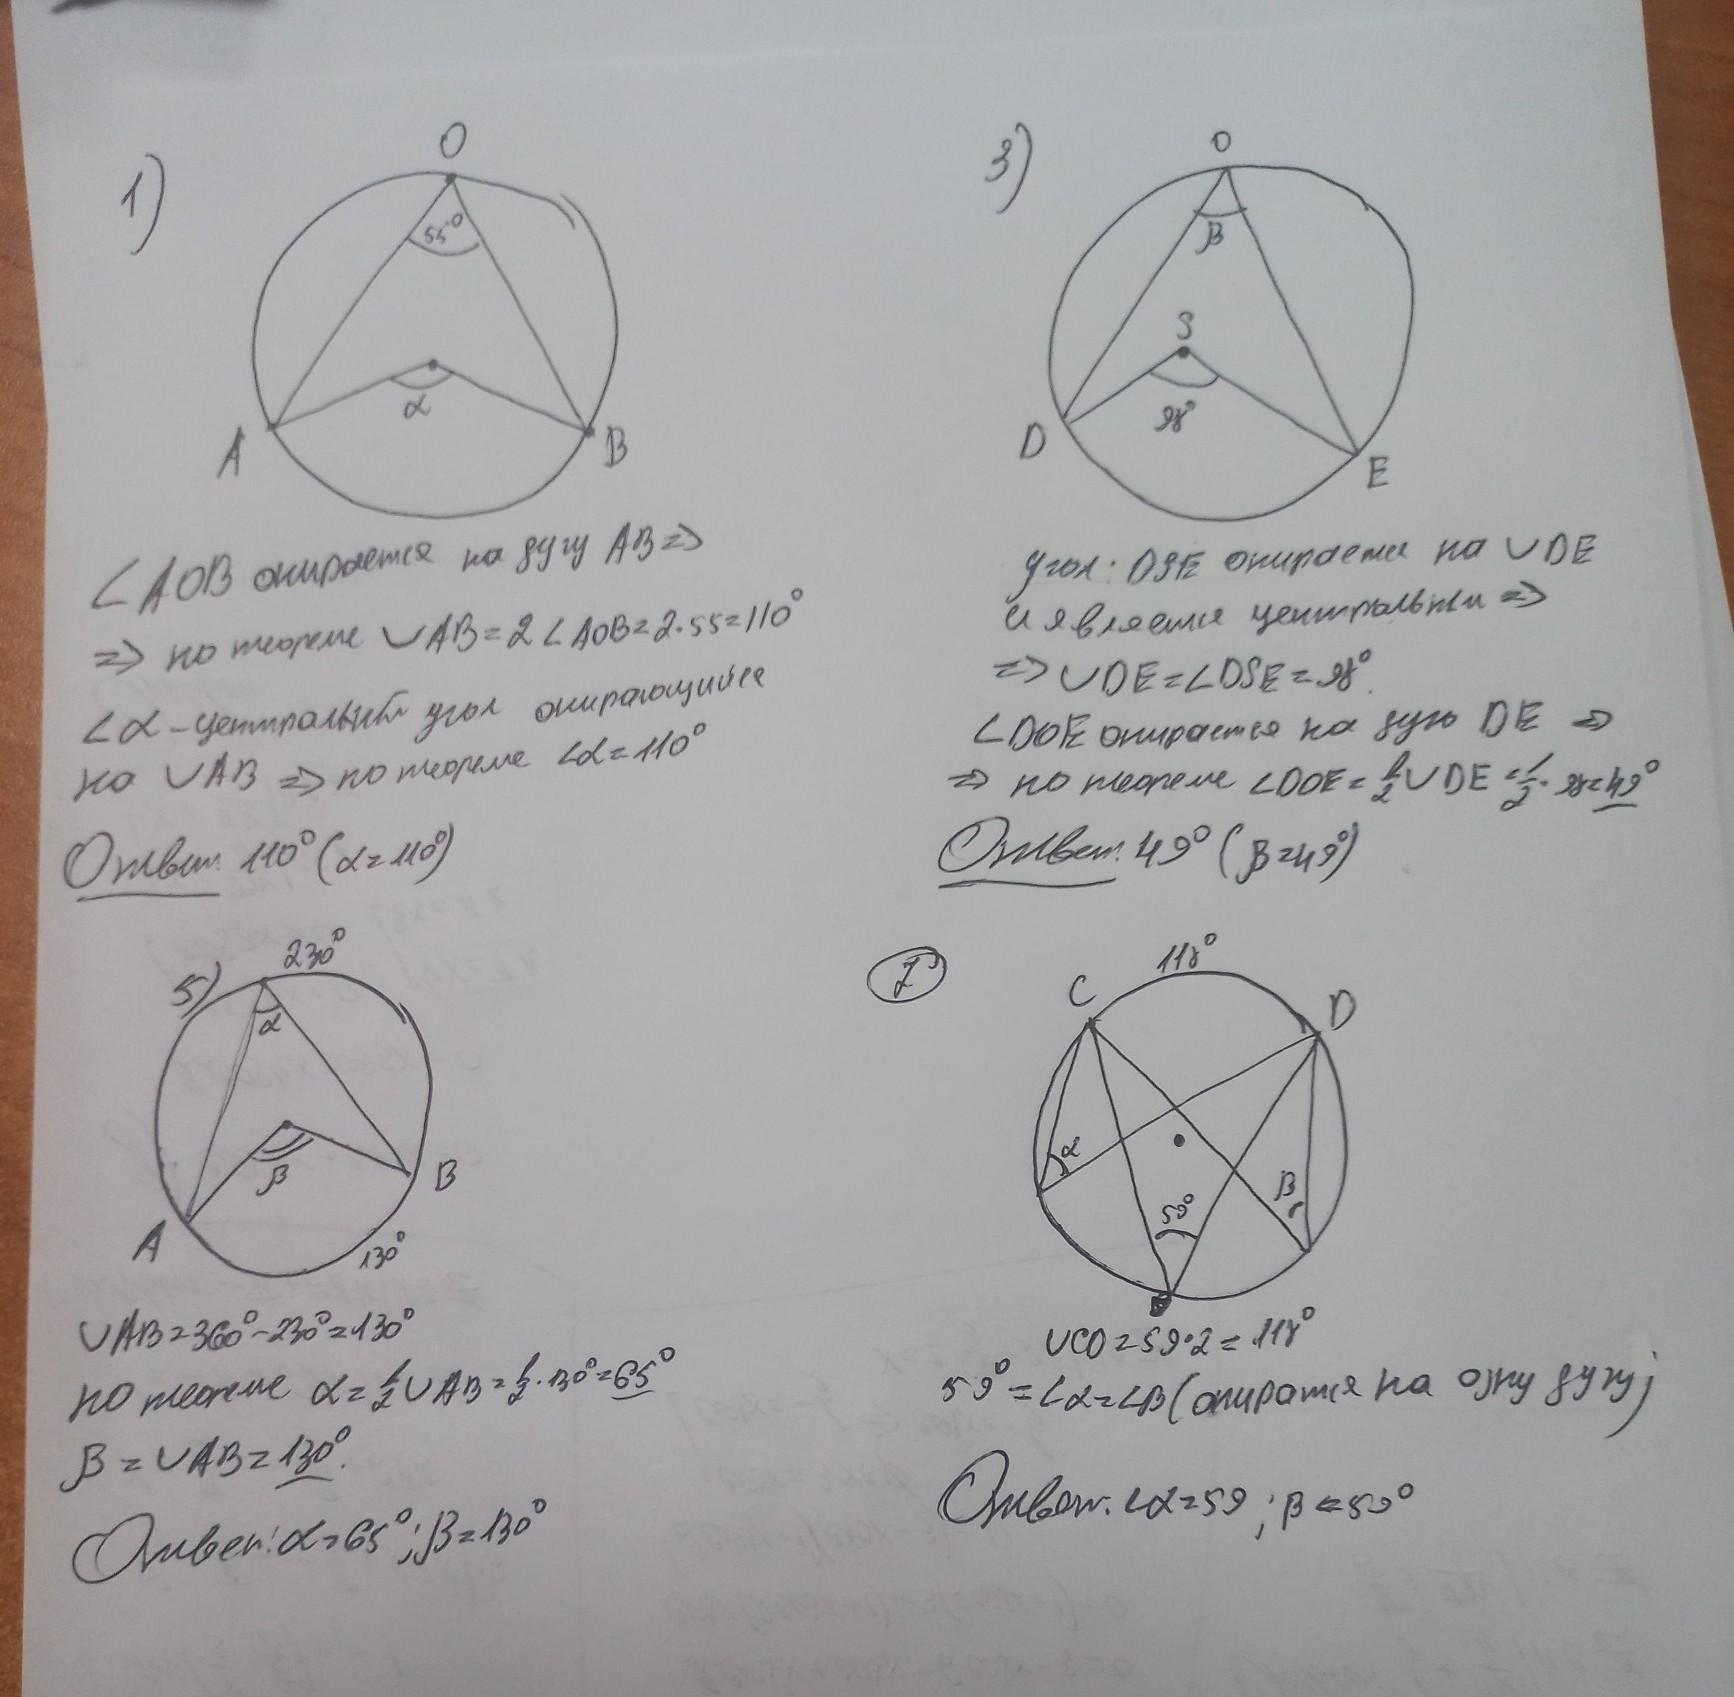 1)
O
55°
α
A
B
∠AOB опирается на дугу AB =>
=> по теореме ∪AB = 2∠AOB = 2·55 = 110°
∠α – центральный угол опирающийся
на ∪AB => по теореме ∠α = 110°
Ответ: 110° (α = 110°)
3)
O
β
S
98°
D
E
Угол: DSE опирается на ∪DE
и является центральным =>
=> ∪DE = ∠DSE = 98°.
∠DOE опирается на дугу DE =>
=> по теореме ∠DOE = 1/2 ∪DE = 1/2 · 98 = 49°
Ответ: 49° (β = 49°)
5)
230°
α
β
A
B
130°
∪AB = 360° - 230° = 130°
по теореме α = 1/2 ∪AB = 1/2 · 130° = 65°
β = ∪AB = 130°.
Ответ: α = 65°; β = 130°
7
118°
C
D
α
59°
β
∪CD = 59·2 = 118°
59° = ∠α = ∠β (опирается на одну дугу)
Ответ: ∠α = 59; β = 59°